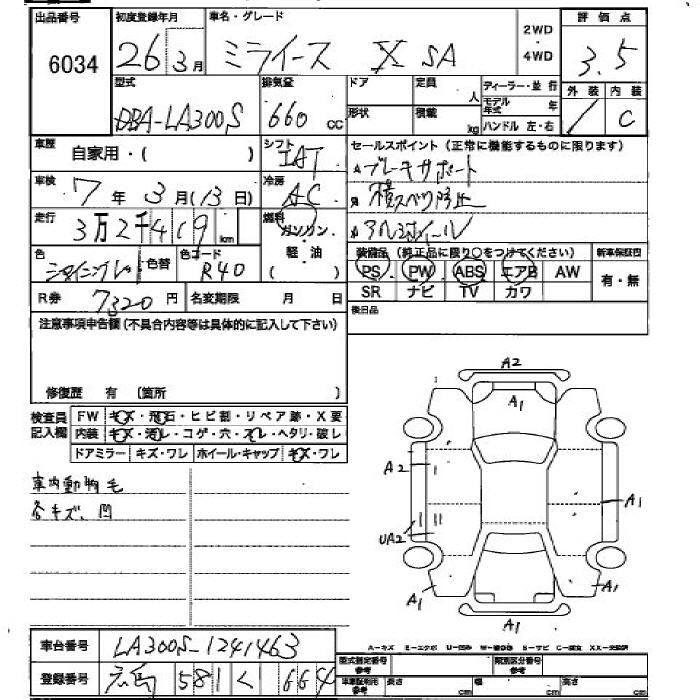 出品番号 初度登録年月 車名・グレード 2WD ・ 4WD 評価点
6034 26年3月 ミライース X SA 3.5
型式 排気量 ドア 定員 人 ディーラー・並行 外装 内装
DBA-LA300S 660cc 形状 積載 kg モデル年式 年 ハンドル 左・右 C
車歴 自家用・( ) シフト IAT セールスポイント(正常に機能するものに限ります)
車検 7年3月(13日) 冷房 AC ▲ブレーキサポート
横スベリ防止
走行 3万2千419km 燃料 ガソリン 軽・油 ( ) アルミホイール
色 シャイニングレ 色替 色コード R40 装備品(純正品に限り○をつけてください) 新車保証書
PS PW ABS エアB AW 有・無
R券 7320円 名変期限 月 日 SR ナビ TV カワ
注意事項申告欄(不具合内容等は具体的に記入して下さい) 後日品
修復歴 有 〔箇所 〕
検査員記入欄 FW キズ・飛石・ヒビ割・リペア跡・X要
内装 キズ・汚レ・コゲ・穴・スレ・ヘタリ・破レ
ドアミラー キズ・ワレ ホイール・キャップ キズ・ワレ
車内動物毛
各キズ、凹
A2
A1
A2
A1
UA2
A1
A1
A1
車台番号 LA300S-1241463
A-キズ E-エクボ U-凹み
型式指定番号 参考 類別区分番号 参考
登録番号 広島 581 く 664 車庫証明用 参考 長さ cm 幅 cm 高さ cm